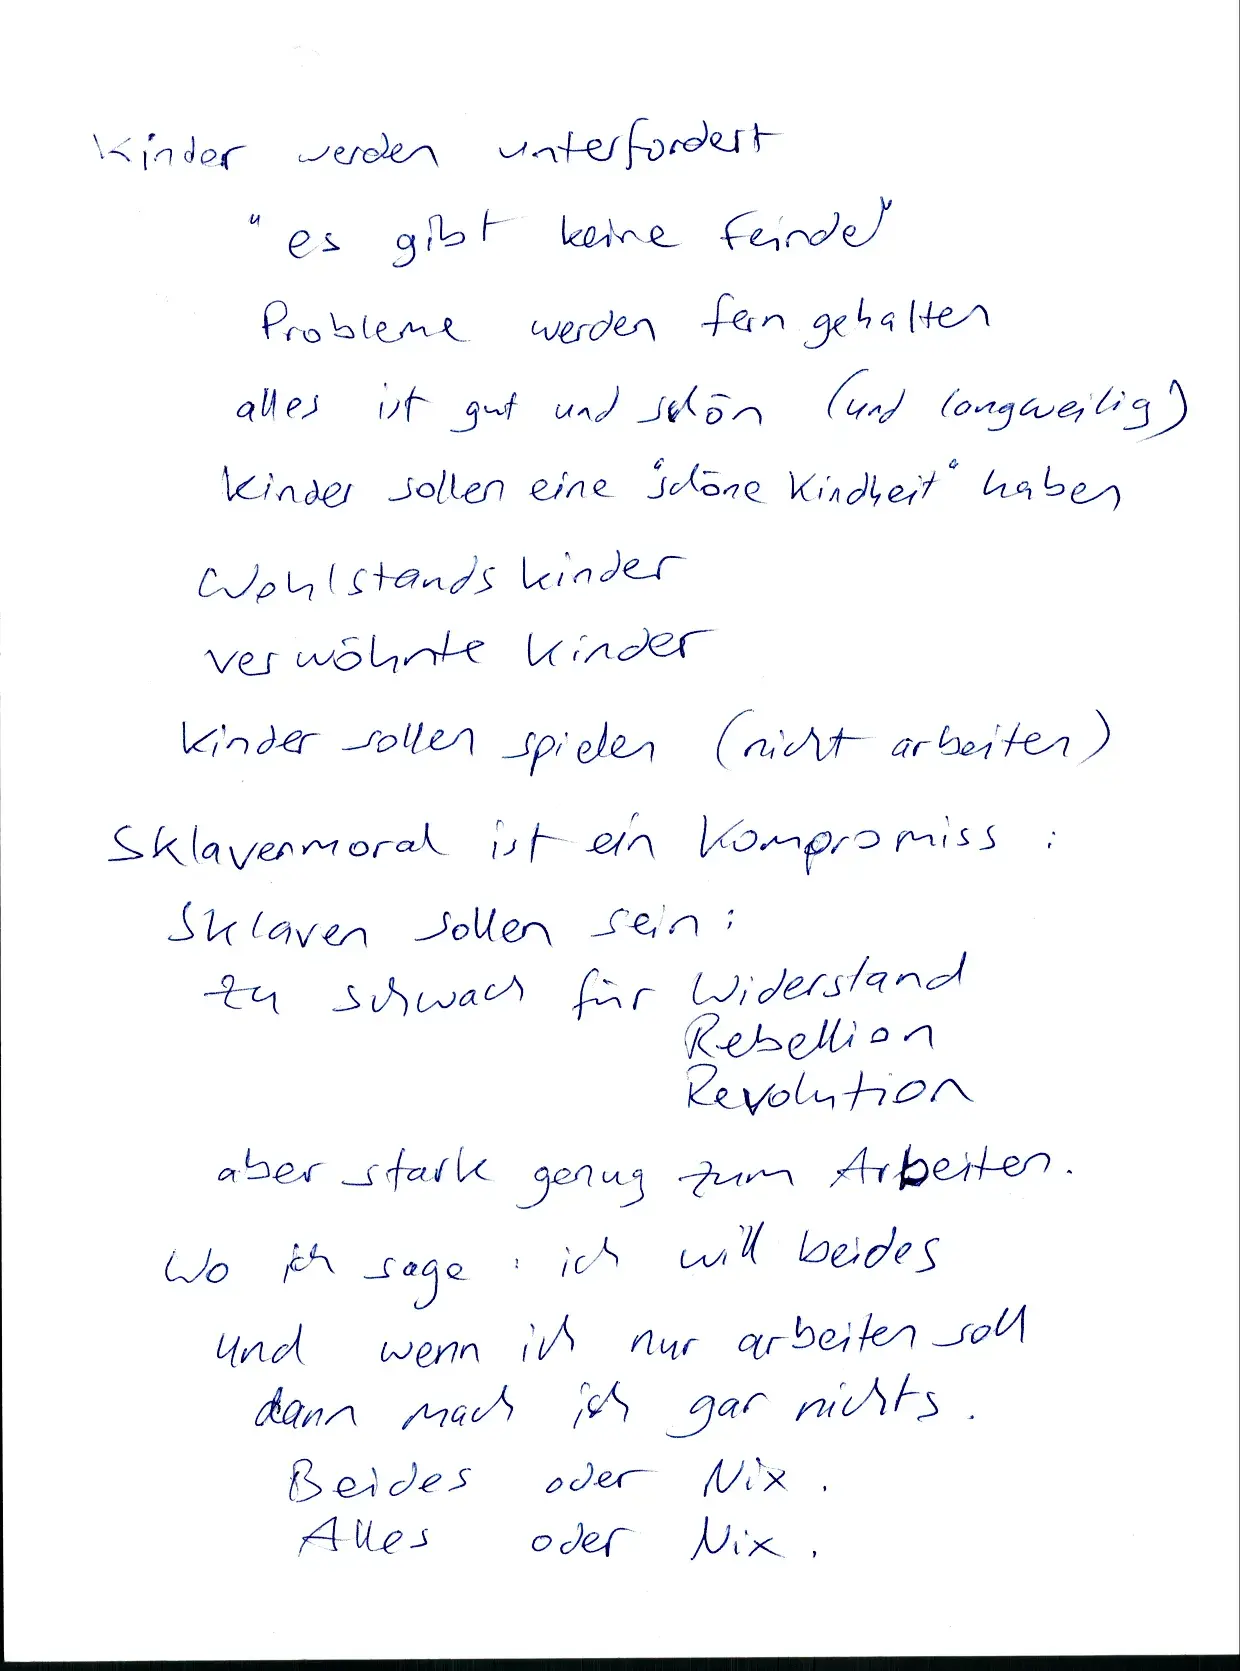 Kinder werden unterfordert
"es gibt keine Feinde"
Probleme werden fern gehalten
alles ist gut und schön (und langweilig)
Kinder sollen eine "schöne Kindheit" haben
Wohlstandskinder
verwöhnte Kinder
Kinder sollen spielen (nicht arbeiten)
Sklavenmoral ist ein Kompromiss :
Sklaven sollen sein :
zu schwach für Widerstand
Rebellion
Revolution
aber stark genug zum Arbeiten.
Wo ich sage : ich will beides
und wenn ich nur arbeiten soll
dann mach ich gar nichts.
Beides oder Nix.
Alles oder Nix.